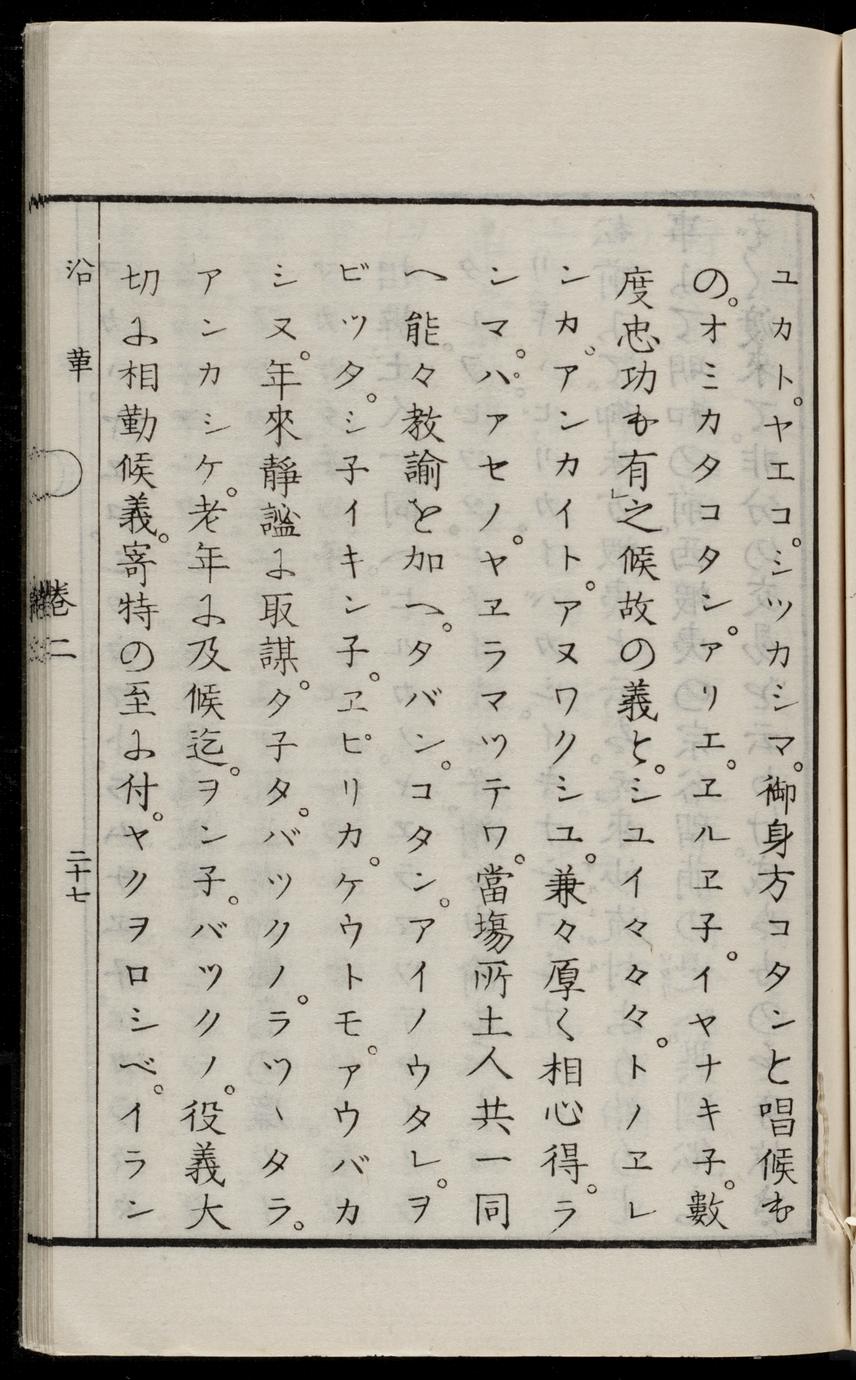 ユカト。ヤエコ。シツカシマ。御身方コタンと唱候も
の。オミカタコタン。アリエ。ヱルヱ子。イヤナキ子。數
度忠功も有」之候故の義と。シユイ々々々。トノヱレ
ンカ゛アンカイト。アヌワクシユ。兼々厚く相心得。ラ
ンマ。パ。アセノ。ヤヱラマツテワ。當塲所土人共一同
へ能々教諭を加へ。タバン。コタン。アイノウタレ。ヲ
ビツタ。シ子イキン子。ヱピリカ。ケウトモ。アウバカ
シヌ。年來靜謐に取謀。タ子タ。バツクノ。ラツヽタラ。
アンカシケ。老年に及候迄。ヲン子。バツクノ。役義大
切に相勤候義。寄特の至に付。ヤクヲロシベ。イラン
沿革
卷二
二十七